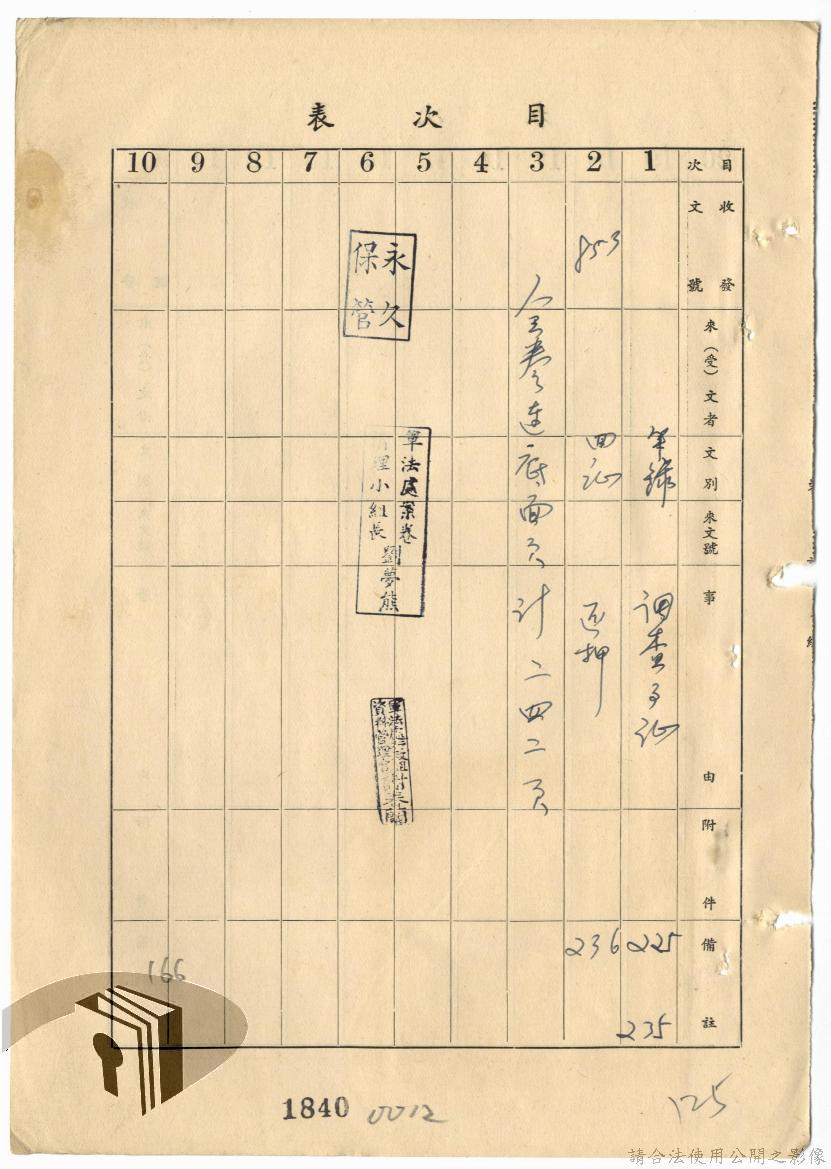 目次表
目次 1 2 3 4 5 6 7 8 9 10
收發文號
來(受)文者
文別
來文號
事由
附件
備註
筆錄
調查筆錄
225
235
853
回證
還押
236
全卷連底面頁計二四二頁
永久保管
軍法處案卷
清理小組長 劉夢熊
166
1840 0012
125
請合法使用公開之影像